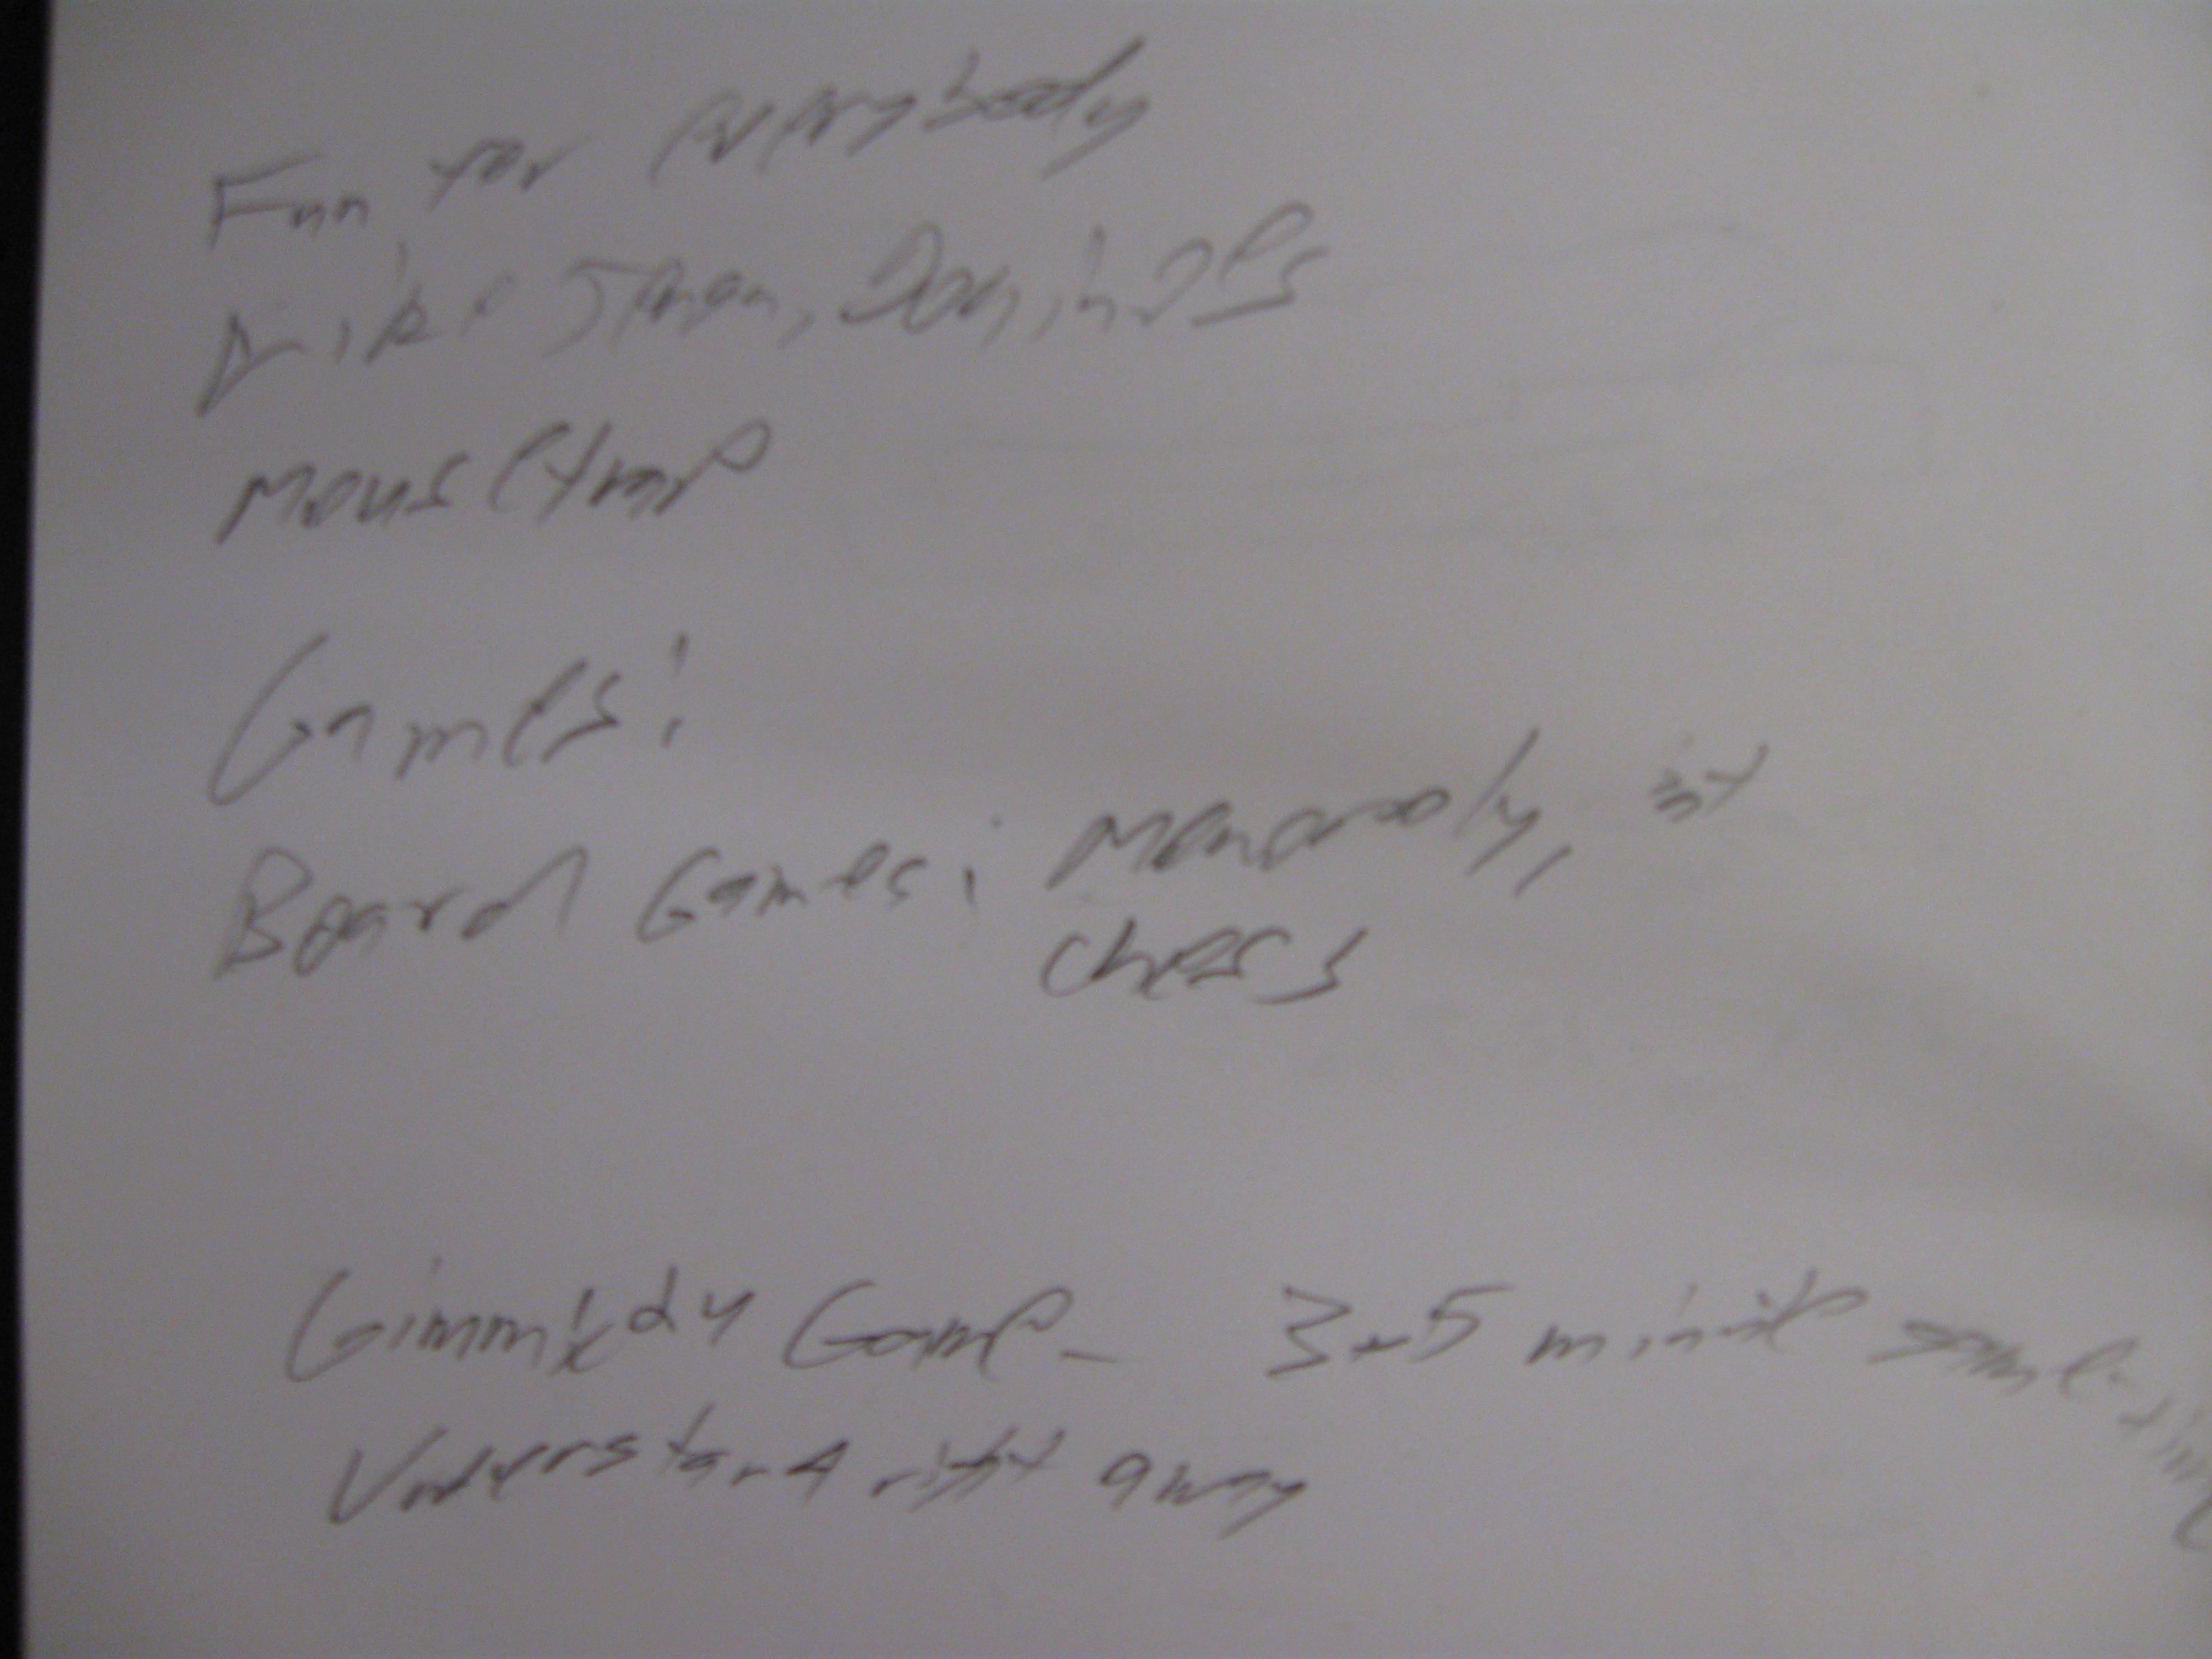 Fun for everybody
Dominoes
Mousetrap
Games:
Board Games: Monopoly,
chess
Game - 3-5 minute
Understand right away